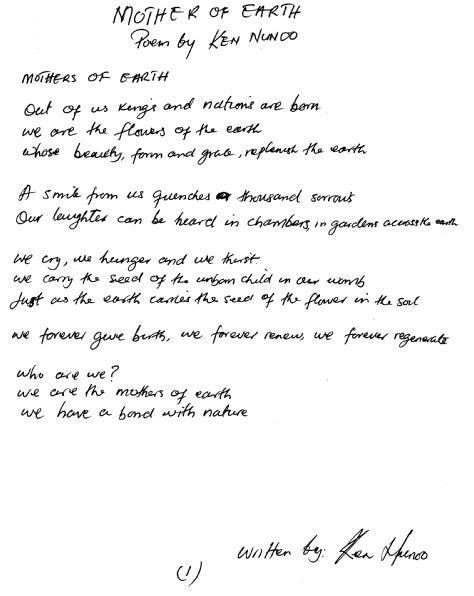 MOTHER OF EARTH
Poem by KEN NUNOO
MOTHERS OF EARTH
Out of us kings and nations are born
we are the flowers of the earth
whose beauty, form and grace, replenish the earth
A smile from us quenches a thousand sorrows
Our laughter can be heard in chambers, in gardens across the earth
we cry, we hunger and we thirst
we carry the seed of the unborn child in our womb
Just as the earth carries the seed of the flower in the soil
we forever give birth, we forever renew, we forever regenerate
who are we?
we are the mothers of earth
we have a bond with nature
written by: Ken Nunoo
(1)